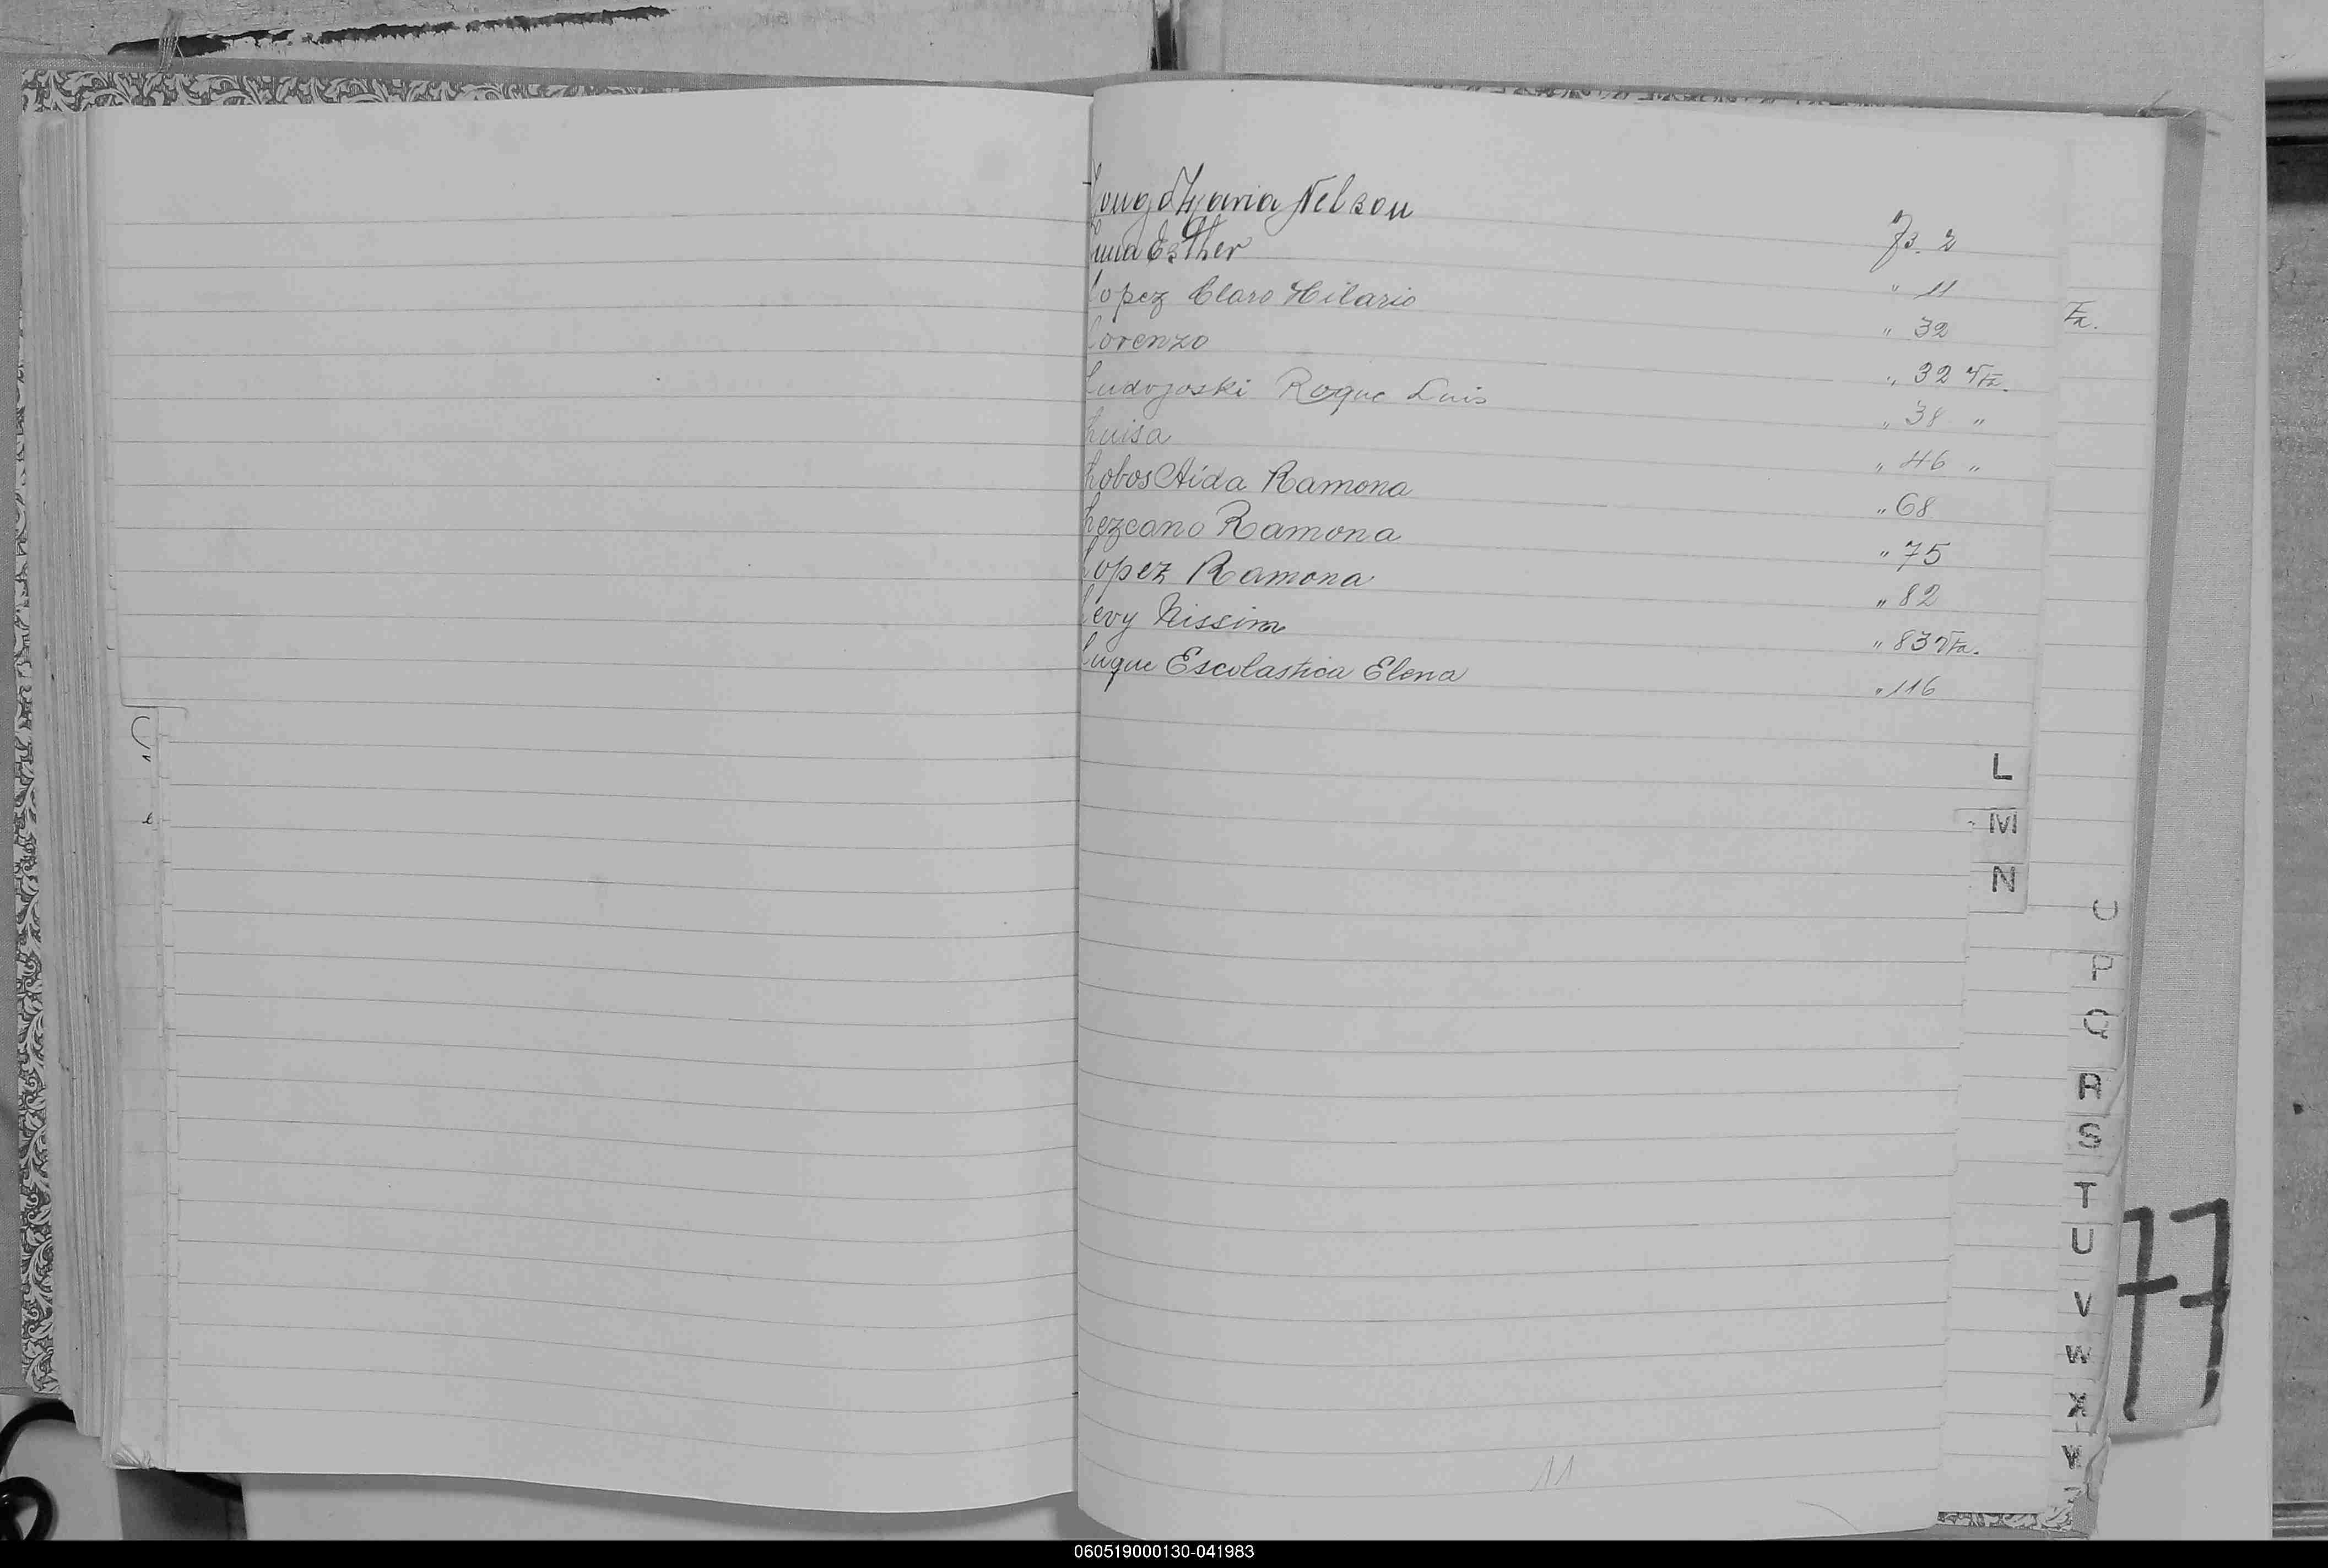 Maria Nelson Fs. 2
Luna Esther " 11
Lopez Claro Hilario " 32
Lorenzo " 32 Vta.
Ludojoski Roque Luis " 38 "
Luisa " 46 "
Lobos Aída Ramona " 68
Lezcano Ramona " 75
Lopez Ramona " 82
Levy Nissim " 83 Vta.
Luque Escolastica Elena " 116
L
M
N
P
Q
R
S
T
U
V
W
X
Y
77
11
060519000130-041983